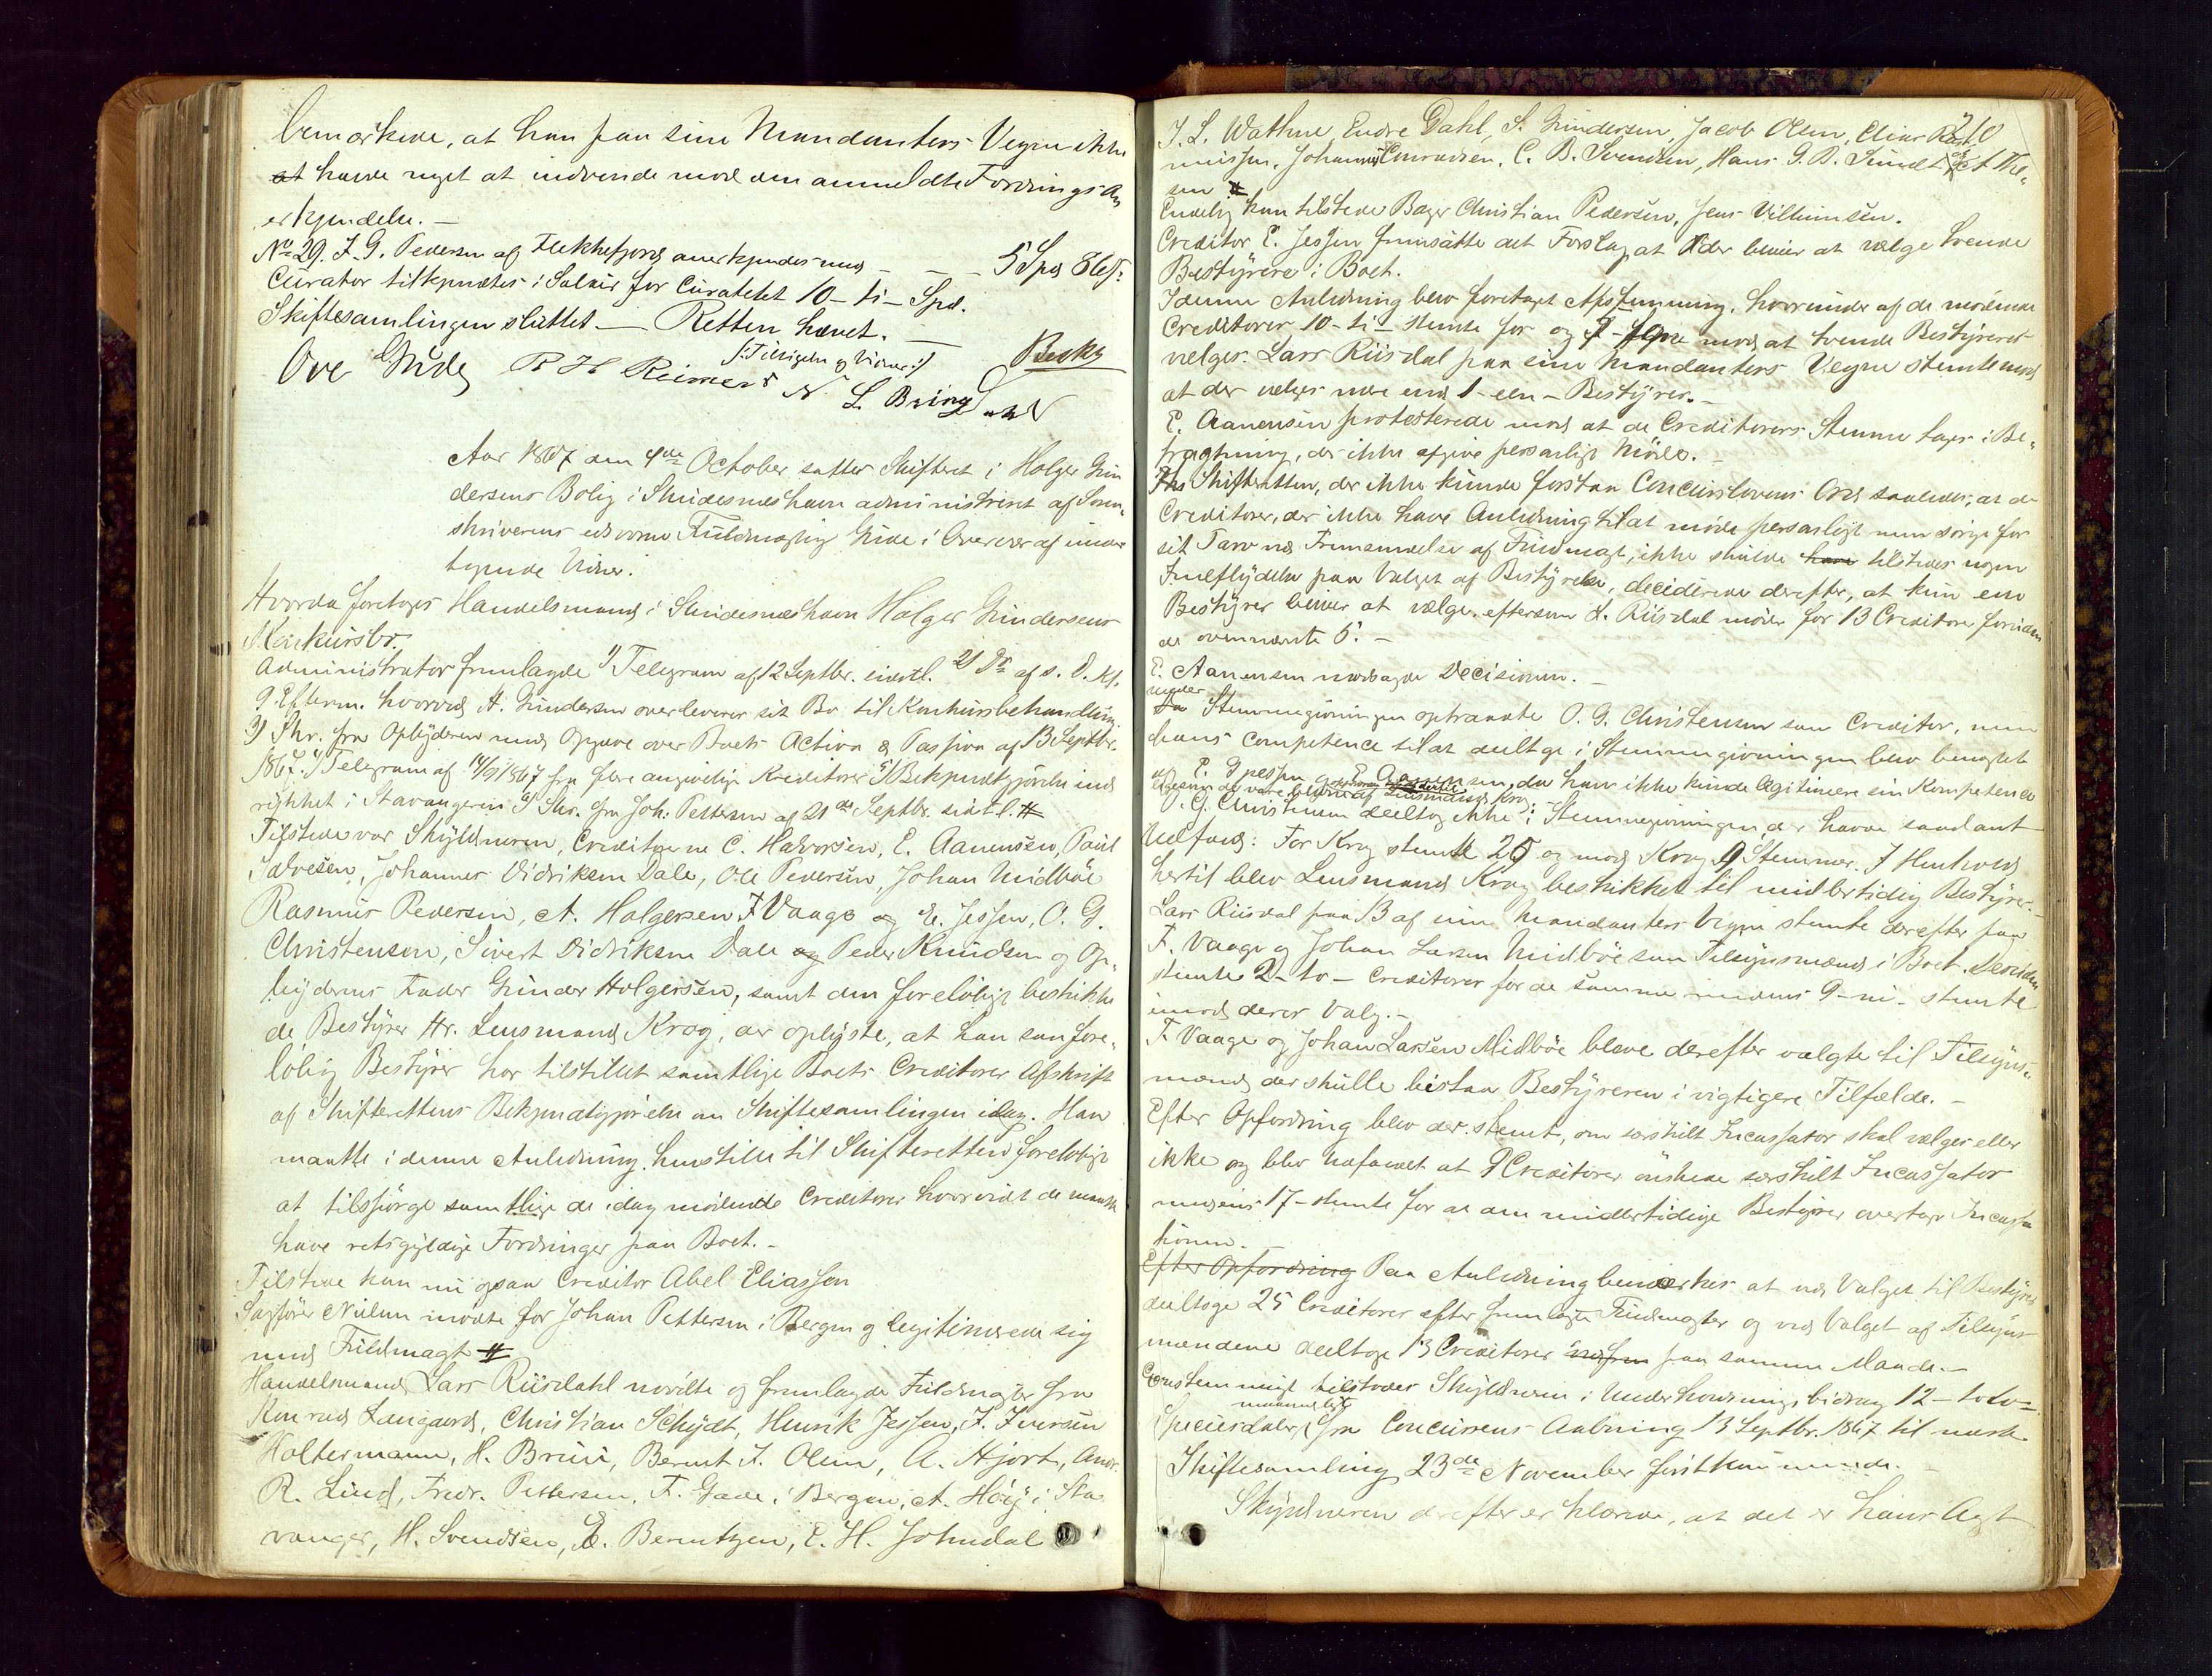 bemærkede, at han paa sine Mandanters Vegne ikke
at havde noget at indvende mod den anmeldte Fordrings An
erkjendelse. —
No 29. J. G. Pedersen af Flekkefjord anerkjendes med — — — 5 Spd 86 s.
Curator tilkjendtes i Salair for Curatelet 10 – ti – Spd.
Skiftesamlingen sluttet. — Retten hævet. —
/: Tilsigelse og Vidner :/
Ove Gude R H Reimers N. L. Bringedahl
Aar 1867 den 4de October sattes Skifteret i Holger Gun
dersens Bolig i Skudesneshavn administreret af Soren,
skriverens edsvorne Fuldmægtig Gude i Overvær af under
tegnede Vidner.
Hvorda foretoges Handelsmand i Skudesneshavn Holger Gundersens
Konkursbo.
Administrator fremlagde 1) Telegram af 12 Septbr. sidstl. 2) Do af s. D. Kl.
9 Efterm. hvorved H. Gundersen overleverer sit Bo til Konkursbehandling.
3) Skr. fra Opbyderen med Opgave over Boets Activa & Passiva af 13 Septbr.
1867. 4) Telegram af 14/9 1867 fra flere angivelige Kreditorer 5) Bekjendtgjørelse ind
rykket i Stavangeren 6) Skr. fra Joh: Pettersen af 21de Septbr. sidstl. #
Tilstede var Skyldneren, Creditorerne C. Halvorsen, E. Aanensen, Paul
Salvesen, Johannes Didriksen Dale, Ole Pedersen, Johan Midbøe
Rasmus Pedersen, A. Holgersen F Vaage og E. Jessen, O. G.
Christensen, Sivert Didriksen Dale og Peder Knudsen og Op,
byderens Fader Gunder Holgersen, samt den foreløbige beskikke
de Bestyrer Hr. Lensmand Krog, der oplyste, at han som fore,
løbig Bestyrer har tilstillet samtlige Boets Creditorer Afskrift
af Skifterettens Bekjendtgjørelse om Skiftesamlingen idag. Han
maatte i denne Anledning henstille til Skifteretten foreløbigt
at tilspørge samtlige de idag mødende Creditorer hvorvidt de maatte
have retsgyldige Fordringer paa Boet. —
Tilstede kom nu ogsaa Creditor Abel Eliassen
Sagfører Nielsen mødte for Johan Pettersen i Bergen og legitimerede sig
med Fuldmagt #
Handelsmand Lars Riisdahl mødte og fremlagde Fuldmagter fra
Konrad Langaard, Christian Schydt, Henrik Jessen, J. Iversen
Holtermann, H. Bruu, Bernt J. Olsen, A. Hjort, Andr.
R. Lind, Fredr. Pettersen, F. Gade i Bergen, A. Høij i Sta
vanger, H. Svendsen, E. Berntzen, E. H. Johndal
J. L. Wathne Endre Dahl, S. Gundersen, Jacob Olsen, Elias Ras
mussen, Johannes Conradsen, C. B. Svendsen, Hans G. B. Sundt og A The,
sen #
Endelig kom tilstede Bager Christian Pedersen, Jens Villumsen.
Creditor E. Jessen fremsatte det Forslag, at der bliver at vælge tvende
Bestyrere i Boet.
I denne Anledning blev foretaget Afstemning, hvorunder af de mødende
Creditorer 10 – ti – stemte for og mod at tvende Bestyrere
vælges. Lars Riisdal paa sine Mandanters Vegne stemte mod
at der vælges mere end 1 – een – Bestyrer. —
E. Aanensen protesterede mod at de Creditorers Stemme tages i Be,
tragtning, der ikke afgive personligt Møde. —
Skifteretten, der ikke kunde forstaa Concurslovens Ord saaledes, at de
Creditorer, der ikke have Anledning til at møde personligt men sørge for
sit Tarv ved Fremsendelse af Fuldmagt, ikke skulde have tilstedes nogen
Indflydelse paa Valget af Bestyrelse, deciderede derefter, at kun een
Bestyrer bliver at vælge, eftersom L. Riisdal møder for 13 Creditorer foruden
de ovennævnte 5. —
E. Aanensen modsagde Decisionen. —
under
Stemmegivningen optraadte O. G. Christensen som Creditor, men
hans Competence til at deeltage i Stemmegivningen blev benægtet
af E. Jessen og E. Aanensen, da han ikke kunde legitimere sin Kompetence
O. G. Christensen deeltog ikke i Stemmegivningen, der havde saadant
Udfald: For Krog stemte 25 og mod Krog 9 Stemmer. I Henhold
hertil blev Lensmand Krog beskikket til midlertidig Bestyrer. —
Lars Riisdal paa 13 af sine Mandanters Vegne stemte derefter paa
F. Vaage og Johan Larsen Midbøe som Tilsynsmænd i Boet. Desuden
stemte 2 – to – Creditorer for de samme medens 9 – ni – stemte
imod deres Valg. —
F. Vaage og Johan Larsen Midbøe bleve derefter valgte til Tilsyns,
mænd der skulle bistaa Bestyreren i vigtigere Tilfælde. —
Efter Opfordring blev der stemt, om særskilt Incassator skal vælges eller
ikke og blev Udfaldet at 9 Creditorer ønskede særskilt Incassator
medens 17 – stemte for at den midlertidige Bestyrer overtager Incassa
tionen. —
Efter Opfordring Paa Anledning bemærkes at ved Valget til Bestyrer
deeltoge 25 Creditorer efter fremlagte Fuldmagter og ved Valget af Tilsyns
mændene deeltoge 13 Creditorer paa samme Maade. —
Eenstemmigt tilstodes Skyldneren i Underholdningsbidrag 12 – tolv –
maanedligt
Speciesdaler fra Concursens Aabning 13 Septbr. 1867 til næste
Skiftesamling 23de November førstkommende. —
Skyldneren derefter erklærede, at det er hans Agt